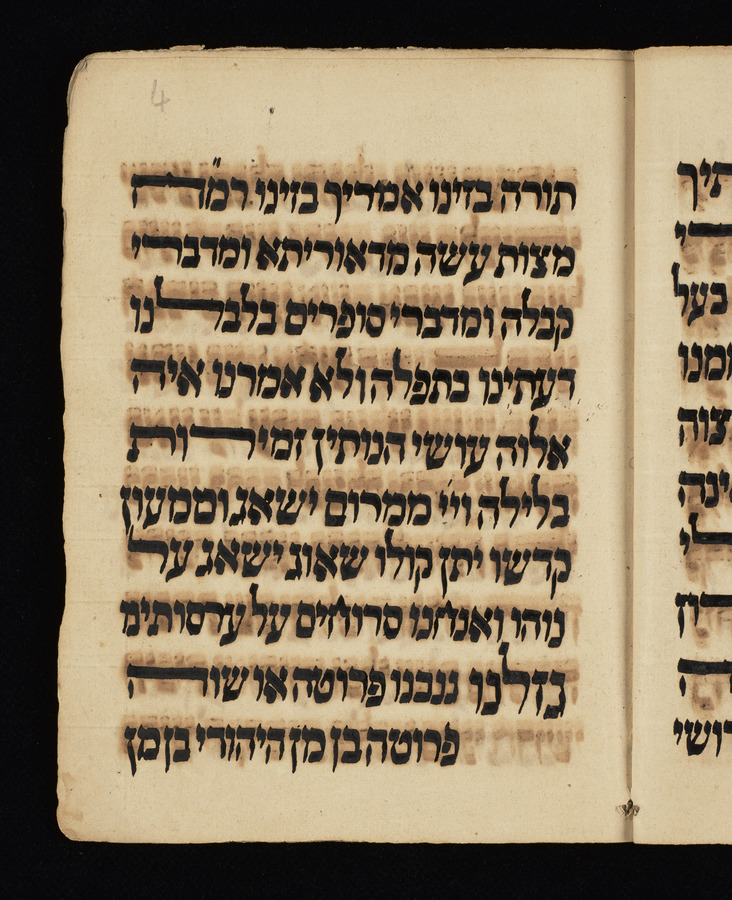 תורה בזינו אמריך בזינו רמ״ח
מצות עשה מדאוריתא ומדברי
קבלה ומדברי סופרים בלבלנו
דעתינו בתפלה ולא אמרנו איה
אלוה עושי הנותין זמירות
בלילה ויי׳ ממרום ישאג וממעון
קדשו יתן קולו שאוג ישאג על
נוהו ואנחנו סרוחים על ערסותימ
גזלנו גנבנו פרוטה או שוה
פרוטה בן מן היהודי בן מן
4